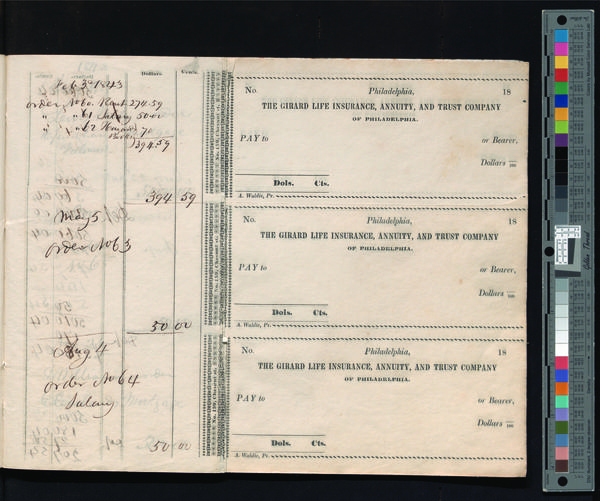 Dollars. Cents.
Feb 3d 1843
order No 60. Rent 274.59
" " 61 Salary 50 00
" " 62 70
394.59
394 59
May 5
order No 63
50 00
Aug 4
order No 64
Salary
50 00
No. Philadelphia, 18
THE GIRARD LIFE INSURANCE, ANNUITY, AND TRUST COMPANY
OF PHILADELPHIA.
PAY to or Bearer,
Dollars /100
Dols. Cts.
A. Waldie, Pr.
No. Philadelphia, 18
THE GIRARD LIFE INSURANCE, ANNUITY, AND TRUST COMPANY
OF PHILADELPHIA.
PAY to or Bearer,
Dollars /100
Dols. Cts.
A. Waldie, Pr.
No. Philadelphia, 18
THE GIRARD LIFE INSURANCE, ANNUITY, AND TRUST COMPANY
OF PHILADELPHIA.
PAY to or Bearer,
Dollars /100
Dols. Cts.
A. Waldie, Pr.